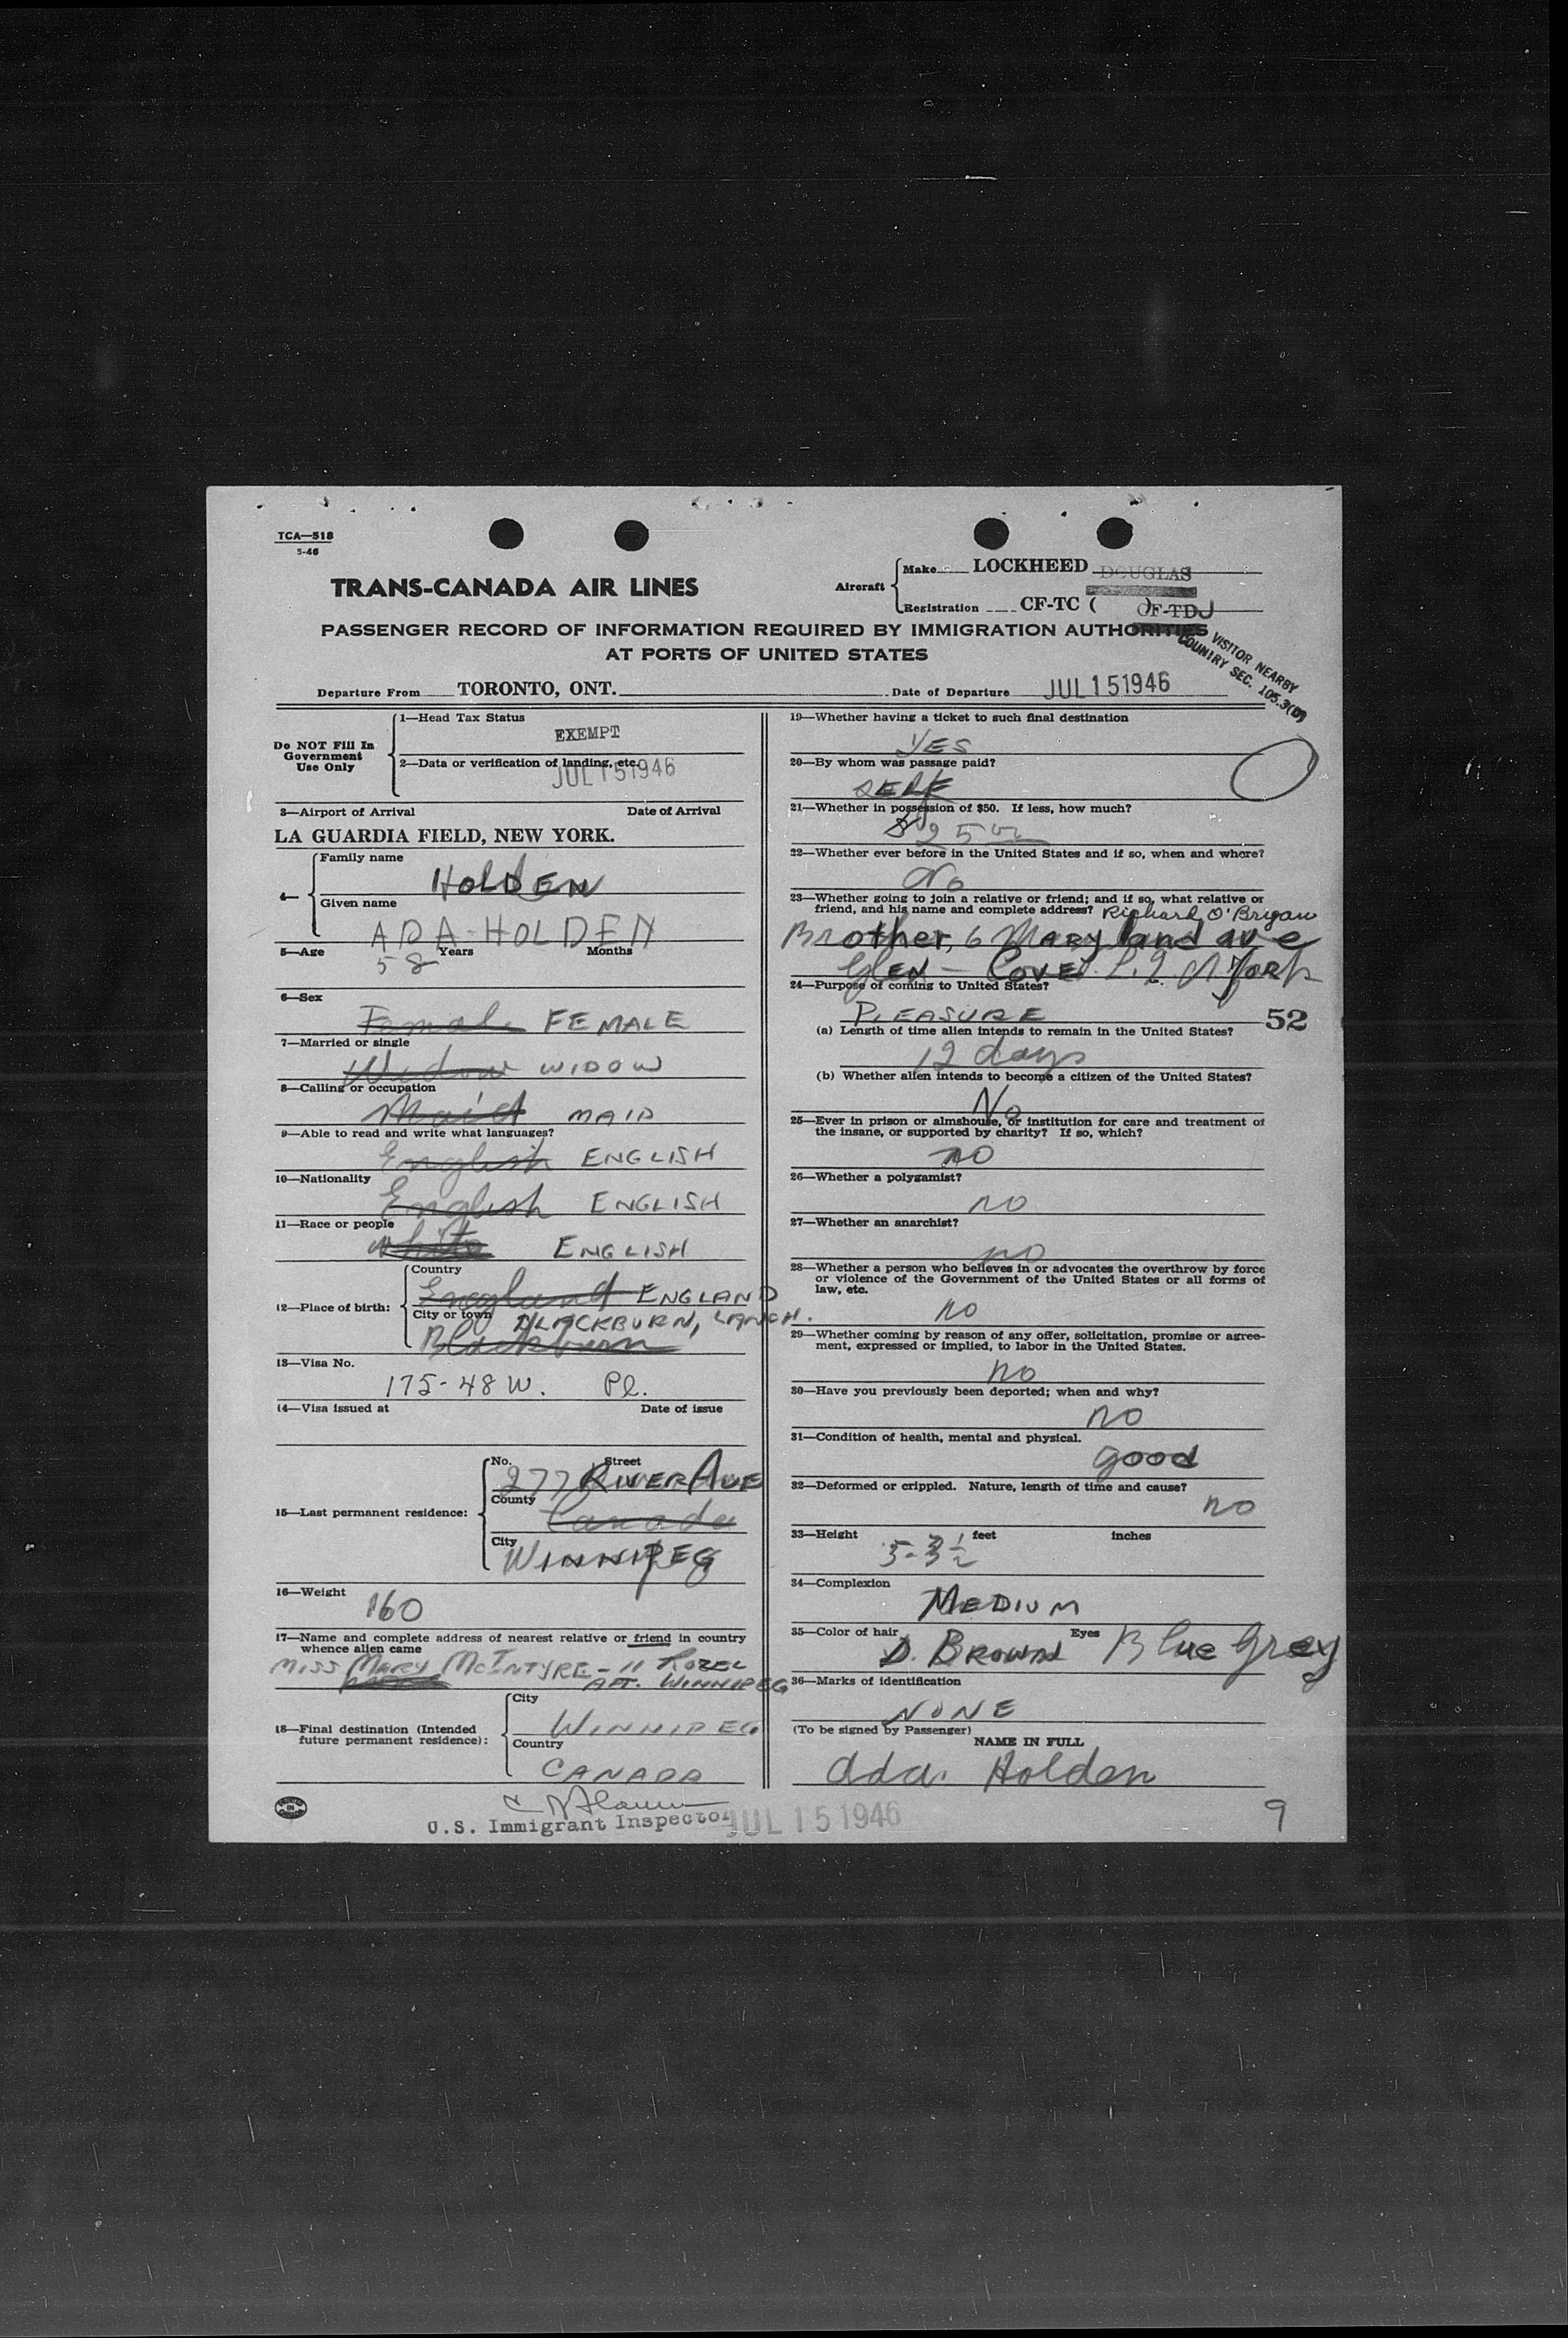 TCA—518
5-46
TRANS-CANADA AIR LINES
Aircraft
Make LOCKHEED DOUGLAS
Registration CF-TC ( ) CF-TDJ
PASSENGER RECORD OF INFORMATION REQUIRED BY IMMIGRATION AUTHORITIES
AT PORTS OF UNITED STATES
VISITOR NEARBY
COUNTRY SEC. 105.3(D)
Departure From TORONTO, ONT. Date of Departure JUL 15 1946
Do NOT Fill In
Government
Use Only
1—Head Tax Status
EXEMPT
2—Data or verification of landing, etc.
JUL 15 1946
3—Airport of Arrival Date of Arrival
LA GUARDIA FIELD, NEW YORK.
4—
Family name
HOLDEN
Given name
ADA-HOLDEN
5—Age Years Months
58
6—Sex
Female FEMALE
7—Married or single
Widow WIDOW
8—Calling or occupation
Maid MAID
9—Able to read and write what languages?
English ENGLISH
10—Nationality
English ENGLISH
11—Race or people
white ENGLISH
12—Place of birth:
Country
England ENGLAND
City or town BLACKBURN, LANCH.
Blackburn
13—Visa No.
175-48 W. Pl.
14—Visa issued at Date of issue
15—Last permanent residence:
No. Street
277 RIVER AVE
County
Canada
City
WINNIPEG
16—Weight
160
17—Name and complete address of nearest relative or friend in country
whence alien came
MISS MARY MCINTYRE - 11 ROZEL
APT. WINNIPEG
18—Final destination (Intended
future permanent residence):
City
WINNIPEG
Country
CANADA
U.S. Immigrant Inspector JUL 15 1946
19—Whether having a ticket to such final destination
YES
20—By whom was passage paid?
SELF
21—Whether in possession of $50. If less, how much?
$25
22—Whether ever before in the United States and if so, when and where?
No
23—Whether going to join a relative or friend; and if so, what relative or
friend, and his name and complete address? Richard O'Bryan
Brother, 6 MARYland ave
GLEN - COVE L.I. N YORK
24—Purpose of coming to United States?
PLEASURE 52
(a) Length of time alien intends to remain in the United States?
12 days
(b) Whether alien intends to become a citizen of the United States?
No
25—Ever in prison or almshouse, or institution for care and treatment of
the insane, or supported by charity? If so, which?
no
26—Whether a polygamist?
no
27—Whether an anarchist?
no
28—Whether a person who believes in or advocates the overthrow by force
or violence of the Government of the United States or all forms of
law, etc.
no
29—Whether coming by reason of any offer, solicitation, promise or agree-
ment, expressed or implied, to labor in the United States.
no
30—Have you previously been deported; when and why?
no
31—Condition of health, mental and physical.
good
32—Deformed or crippled. Nature, length of time and cause?
no
33—Height feet inches
5-3½
34—Complexion
MEDIUM
35—Color of hair Eyes
D. BROWN Blue Grey
36—Marks of identification
NONE
(To be signed by Passenger)
NAME IN FULL
Ada Holden
9